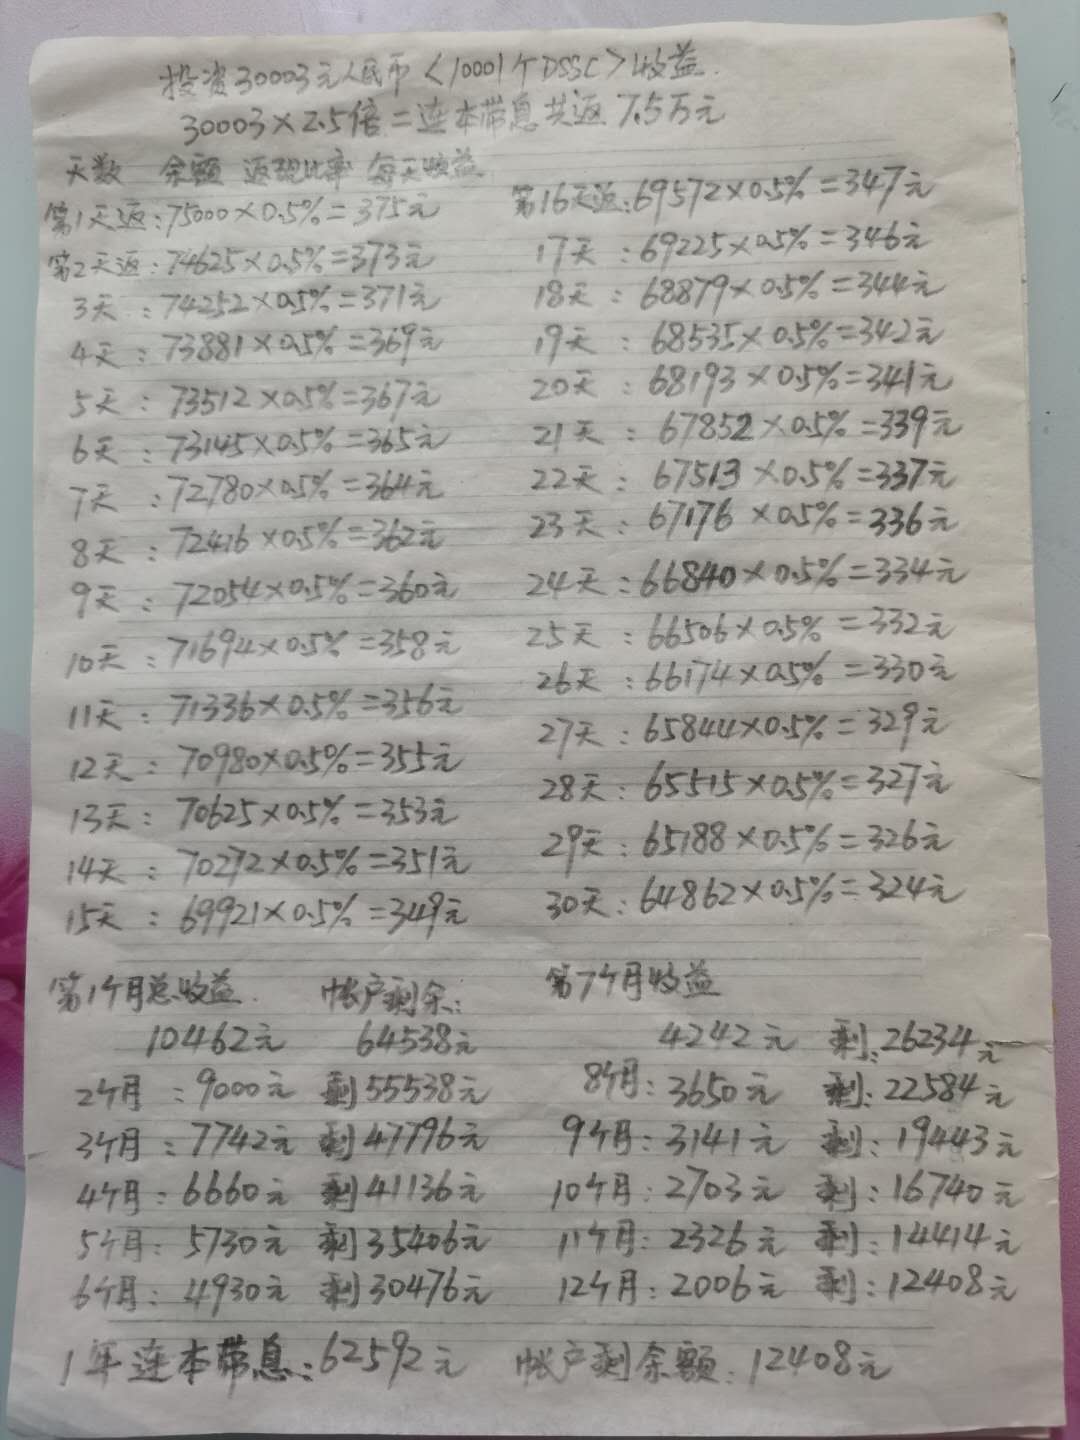 投资30003元人民币<10001个DSSC>收益.
30003×2.5倍=连本带息共返7.5万元
天数 余额 返现比率 每天收益
第1天返:75000×0.5%=375元
第2天返:74625×0.5%=373元
3天:74252×0.5%=371元
4天:73881×0.5%=369元
5天:73512×0.5%=367元
6天:73145×0.5%=365元
7天:72780×0.5%=364元
8天:72416×0.5%=362元
9天:72054×0.5%=360元
10天:71694×0.5%=358元
11天:71336×0.5%=356元
12天:70980×0.5%=355元
13天:70625×0.5%=353元
14天:70272×0.5%=351元
15天:69921×0.5%=349元
第16天返:69572×0.5%=347元
17天:69225×0.5%=346元
18天:68879×0.5%=344元
19天:68535×0.5%=342元
20天:68193×0.5%=341元
21天:67852×0.5%=339元
22天:67513×0.5%=337元
23天:67176×0.5%=336元
24天:66840×0.5%=334元
25天:66506×0.5%=332元
26天:66174×0.5%=330元
27天:65844×0.5%=329元
28天:65515×0.5%=327元
29天:65188×0.5%=326元
30天:64862×0.5%=324元
第1个月总收益. 帐户剩余:
10462元 64538元
2个月:9000元 剩55538元
3个月:7742元 剩47796元
4个月:6660元 剩41136元
5个月:5730元 剩35406元
6个月:4930元 剩30476元
第7个月收益
4242元 剩:26234元
8个月:3650元 剩:22584元
9个月:3141元 剩:19443元
10个月:2703元 剩:16740元
11个月:2326元 剩:14414元
12个月:2006元 剩:12408元
1年连本带息:62592元 帐户剩余额:12408元